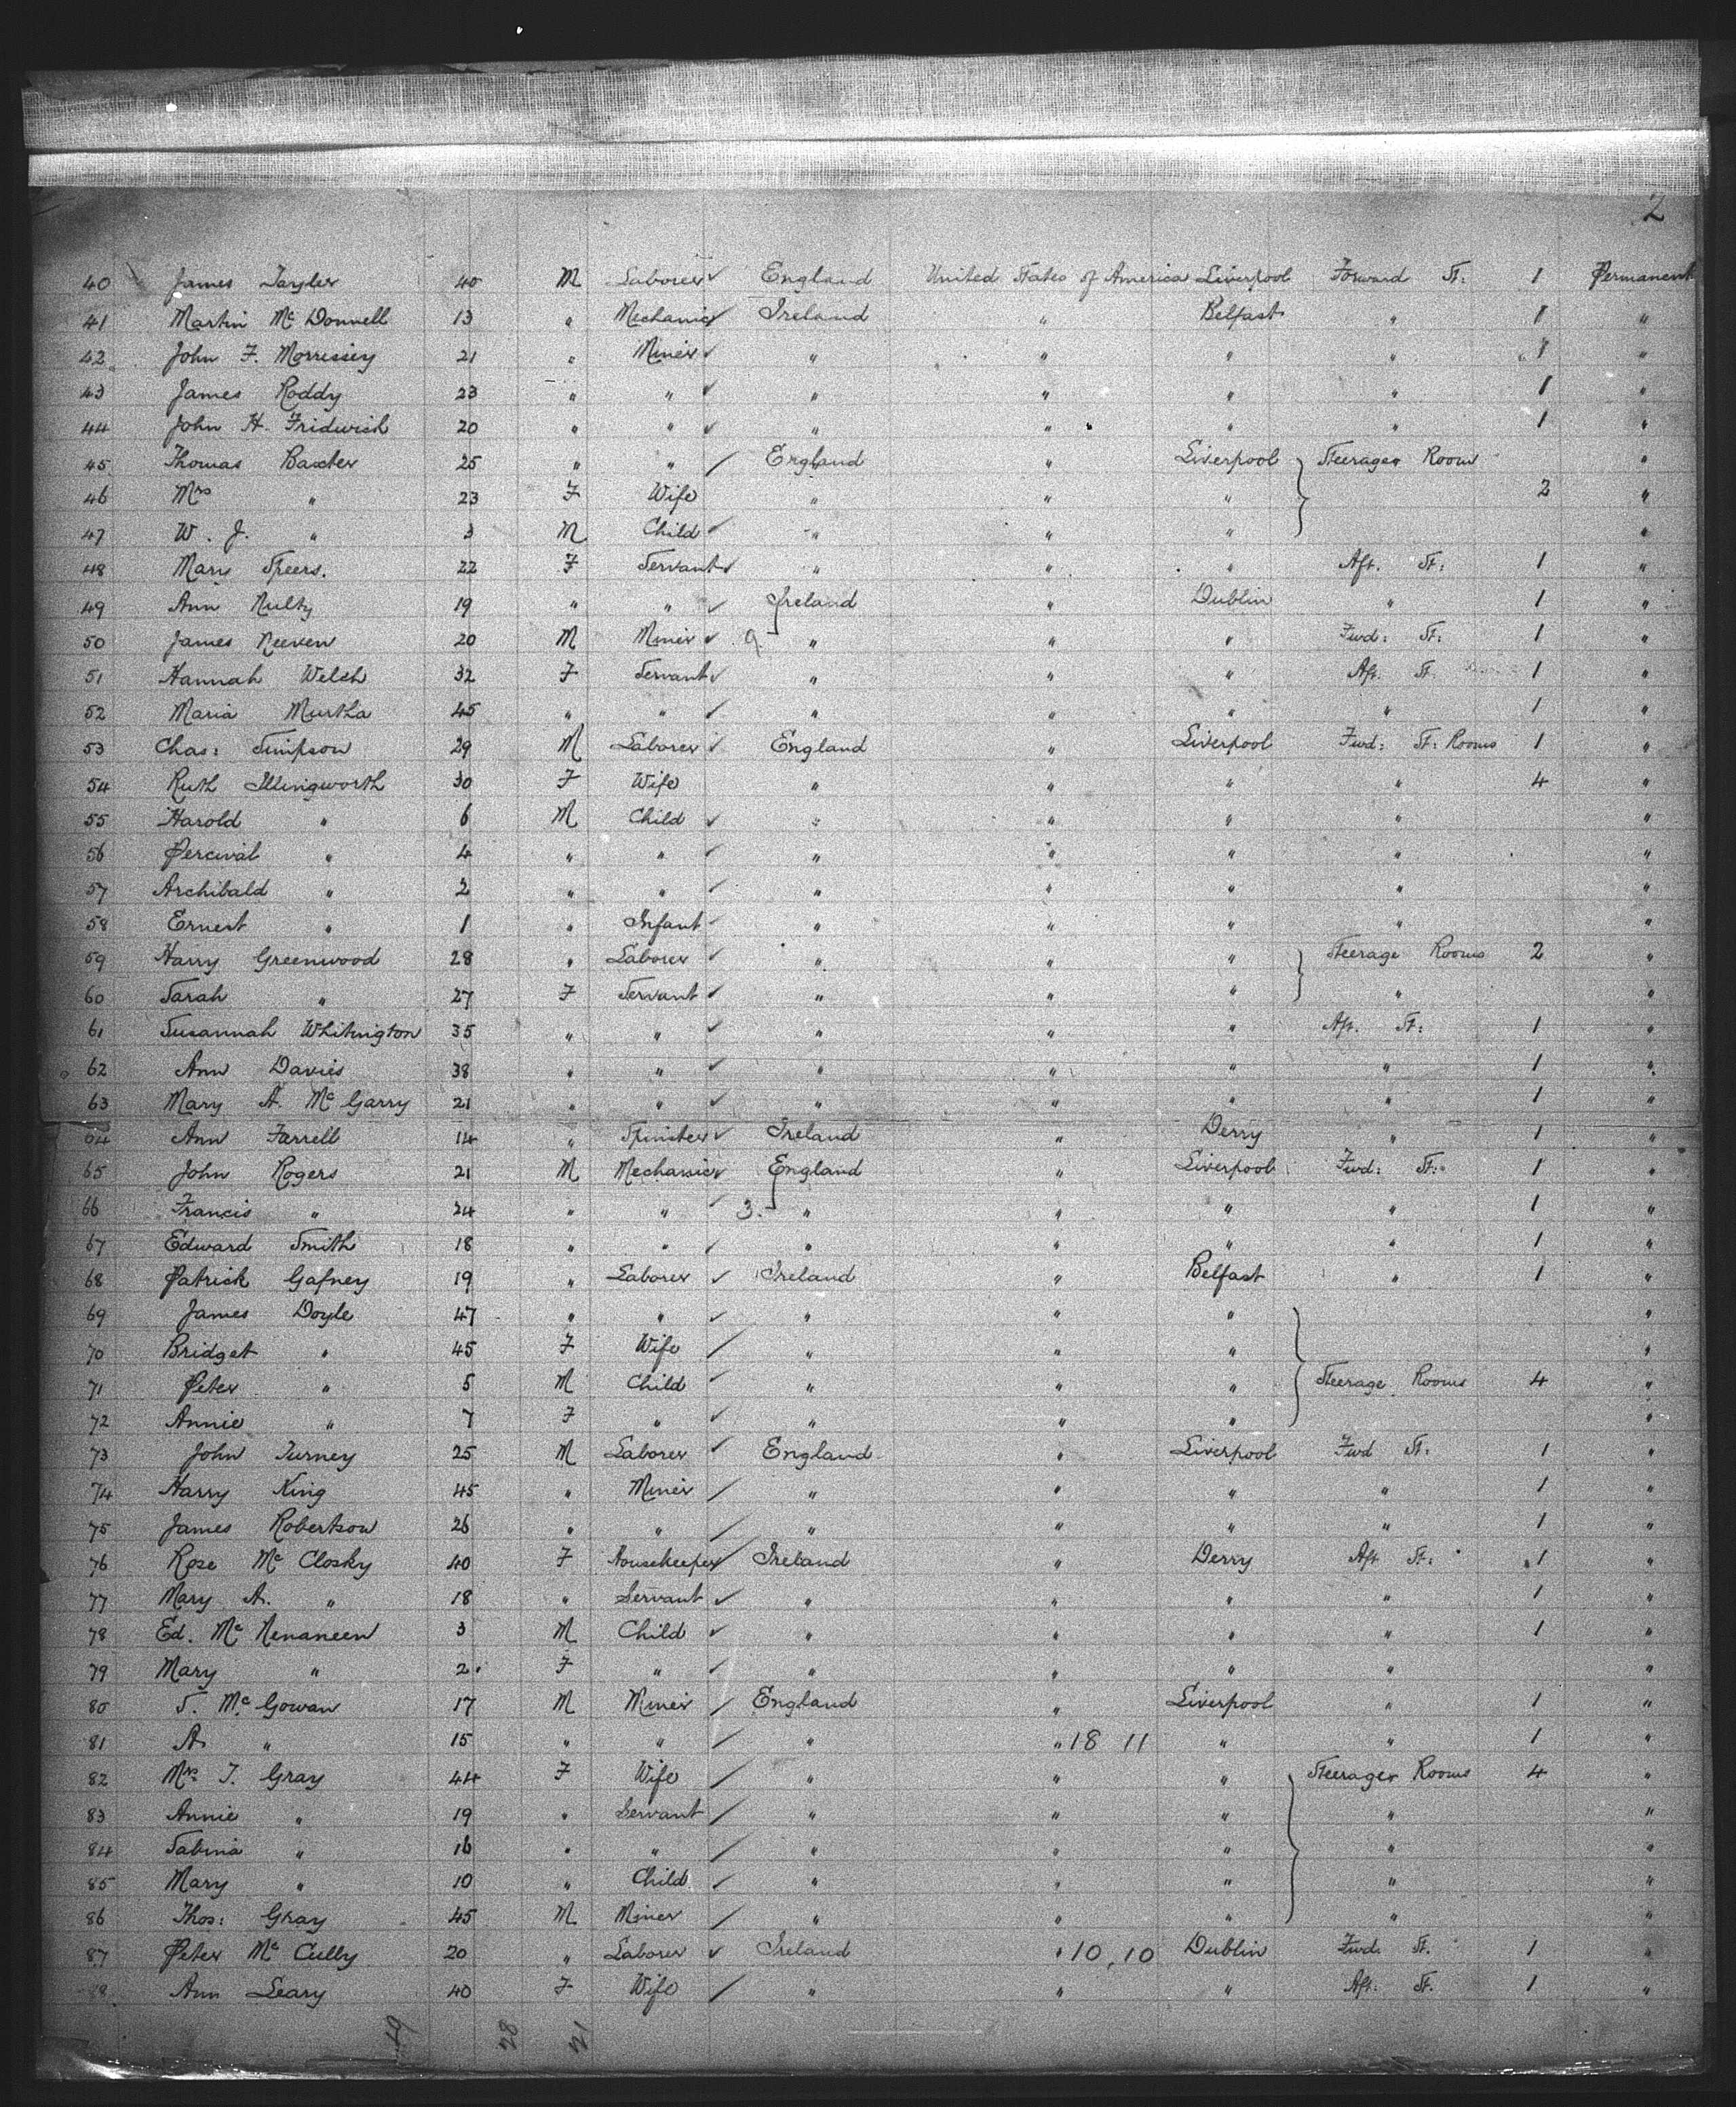 2
40 James Tayler 40 M Laborer ✓ England United States of America Liverpool Forward St: 1 Permanent
41 Martin Mc Donnell 13 " Mechanic ✓ Ireland " Belfast " 1 "
42 John F. Morrissey 21 " Miner ✓ " " " " 1 "
43 James Roddy 23 " " ✓ " " " " 1 "
44 John H. Fridwich 20 " " ✓ " " " " 1 "
45 Thomas Baxter 25 " " / England " Liverpool } Steerage Room "
46 Mrs " 23 F Wife " " " 2 "
47 W. J. " 3 M Child ✓ " " " "
48 Mary Speers. 22 F Servant ✓ " " " Aft. St: 1 "
49 Ann Nulty 19 " " ✓ Ireland " Dublin " 1 "
50 James Neeven 20 M Miner ✓ 9. " " " Fwd: St: 1 "
51 Hannah Welsh 32 F Servant ✓ " " " Aft. St. 1 "
52 Maria Murtha 45 " " ✓ " " " " 1 "
53 Chas: Simpson 29 M Laborer ✓ England " Liverpool Fwd: St: Rooms 1 "
54 Ruth Illingworth 30 F Wife " " " " 4 "
55 Harold " 6 M Child ✓ " " " " "
56 Percival " 4 " " ✓ " " " " "
57 Archibald " 2 " " ✓ " " " " "
58 Ernest " 1 " Infant ✓ " " " " "
59 Harry Greenwood 28 " Laborer ✓ " " " } Steerage Rooms 2 "
60 Sarah " 27 F Servant ✓ " " " " "
61 Susannah Whitington 35 " " ✓ " " " Aft. St: 1 "
62 Ann Davies 38 " " ✓ " " " " 1 "
63 Mary A. Mc Garry 21 " " ✓ " " " " 1 "
64 Ann Farrell 14 " Spinster ✓ Ireland " Derry " 1 "
65 John Rogers 21 M Mechanic ✓ England " Liverpool Fwd: St: 1 "
66 Francis " 24 " " 3. " " " " 1 "
67 Edward Smith 18 " " ✓ " " " " 1 "
68 Patrick Gafney 19 " Laborer ✓ Ireland " Belfast " 1 "
69 James Doyle 47 " " ✓ " " " "
70 Bridget " 45 F Wife / " " " "
71 Peter " 5 M Child ✓ " " " } Steerage Rooms 4 "
72 Annie " 7 F " ✓ " " " "
73 John Turney 25 M Laborer ✓ England " Liverpool Fwd St: 1 "
74 Harry King 45 " Miner / " " " " 1 "
75 James Robertson 26 " " / " " " " 1 "
76 Rose Mc Closky 40 F Housekeeper ✓ Ireland " Derry Aft St: 1 "
77 Mary A. " 18 " Servant ✓ " " " " 1 "
78 Ed. Mc Nenaneen 3 M Child ✓ " " " " 1 "
79 Mary " 2 F " ✓ " " " " "
80 T. Mc Gowan 17 M Miner / England " Liverpool " 1 "
81 A. " 15 " " / " " 18 11 " " 1 "
82 Mrs T. Gray 44 F Wife / " " " } Steerage Rooms 4 "
83 Annie " 19 " Servant / " " " " "
84 Sabina " 16 " " / " " " " "
85 Mary " 10 " Child ✓ " " " " "
86 Thos: Gray 45 M Miner / " " " " "
87 Peter Mc Cully 20 " Laborer ✓ Ireland " 10,10 Dublin Fwd. St. 1 "
88 Ann Leary 40 F Wife / " " " Aft. St. 1 "
49 28 21